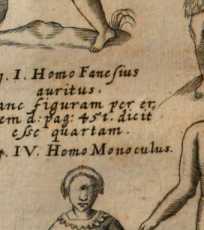 I. Homo Fanesius
auritus.
anc figuram per er,
em d: pag: 451. dicit
esse quartam.
IV. Homo Monoculus.